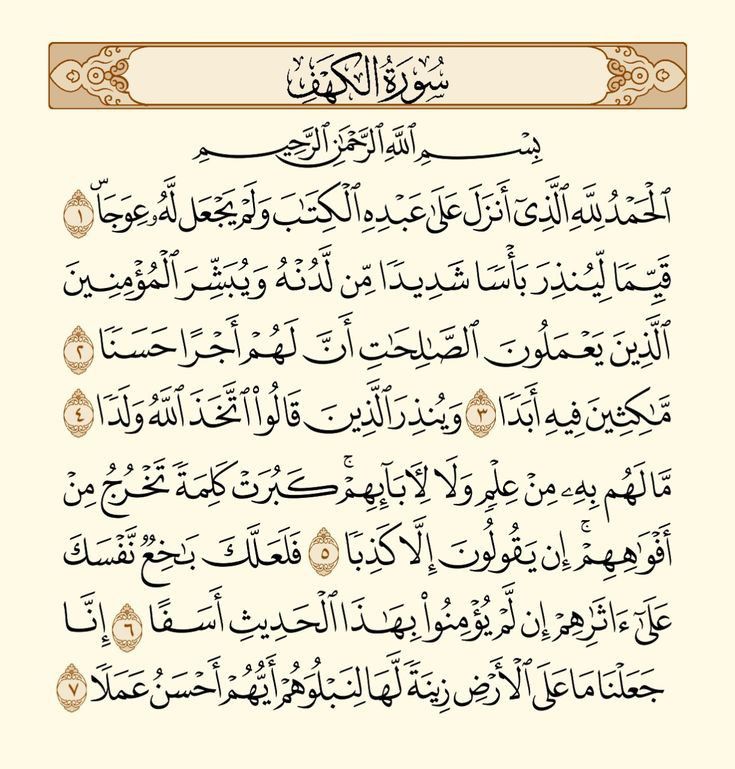 سُورَةُ الكَهْفِ
بِسْمِ ٱللَّهِ ٱلرَّحْمَٰنِ ٱلرَّحِيمِ
ٱلْحَمْدُ لِلَّهِ ٱلَّذِىٓ أَنزَلَ عَلَىٰ عَبْدِهِ ٱلْكِتَٰبَ وَلَمْ يَجْعَل لَّهُۥ عِوَجَاۜ ١
قَيِّمًا لِّيُنذِرَ بَأْسًا شَدِيدًا مِّن لَّدُنْهُ وَيُبَشِّرَ ٱلْمُؤْمِنِينَ
ٱلَّذِينَ يَعْمَلُونَ ٱلصَّٰلِحَٰتِ أَنَّ لَهُمْ أَجْرًا حَسَنًا ٢
مَّٰكِثِينَ فِيهِ أَبَدًا ٣ وَيُنذِرَ ٱلَّذِينَ قَالُوا۟ ٱتَّخَذَ ٱللَّهُ وَلَدًا ٤
مَّا لَهُم بِهِۦ مِنْ عِلْمٍ وَلَا لِـَٔابَآئِهِمْ ۚ كَبُرَتْ كَلِمَةً تَخْرُجُ مِنْ
أَفْوَٰهِهِمْ ۚ إِن يَقُولُونَ إِلَّا كَذِبًا ٥ فَلَعَلَّكَ بَٰخِعٌ نَّفْسَكَ
عَلَىٰٓ ءَاثَٰرِهِمْ إِن لَّمْ يُؤْمِنُوا۟ بِهَٰذَا ٱلْحَدِيثِ أَسَفًا ٦ إِنَّا
جَعَلْنَا مَا عَلَى ٱلْأَرْضِ زِينَةً لَّهَا لِنَبْلُوَهُمْ أَيُّهُمْ أَحْسَنُ عَمَلًا ٧